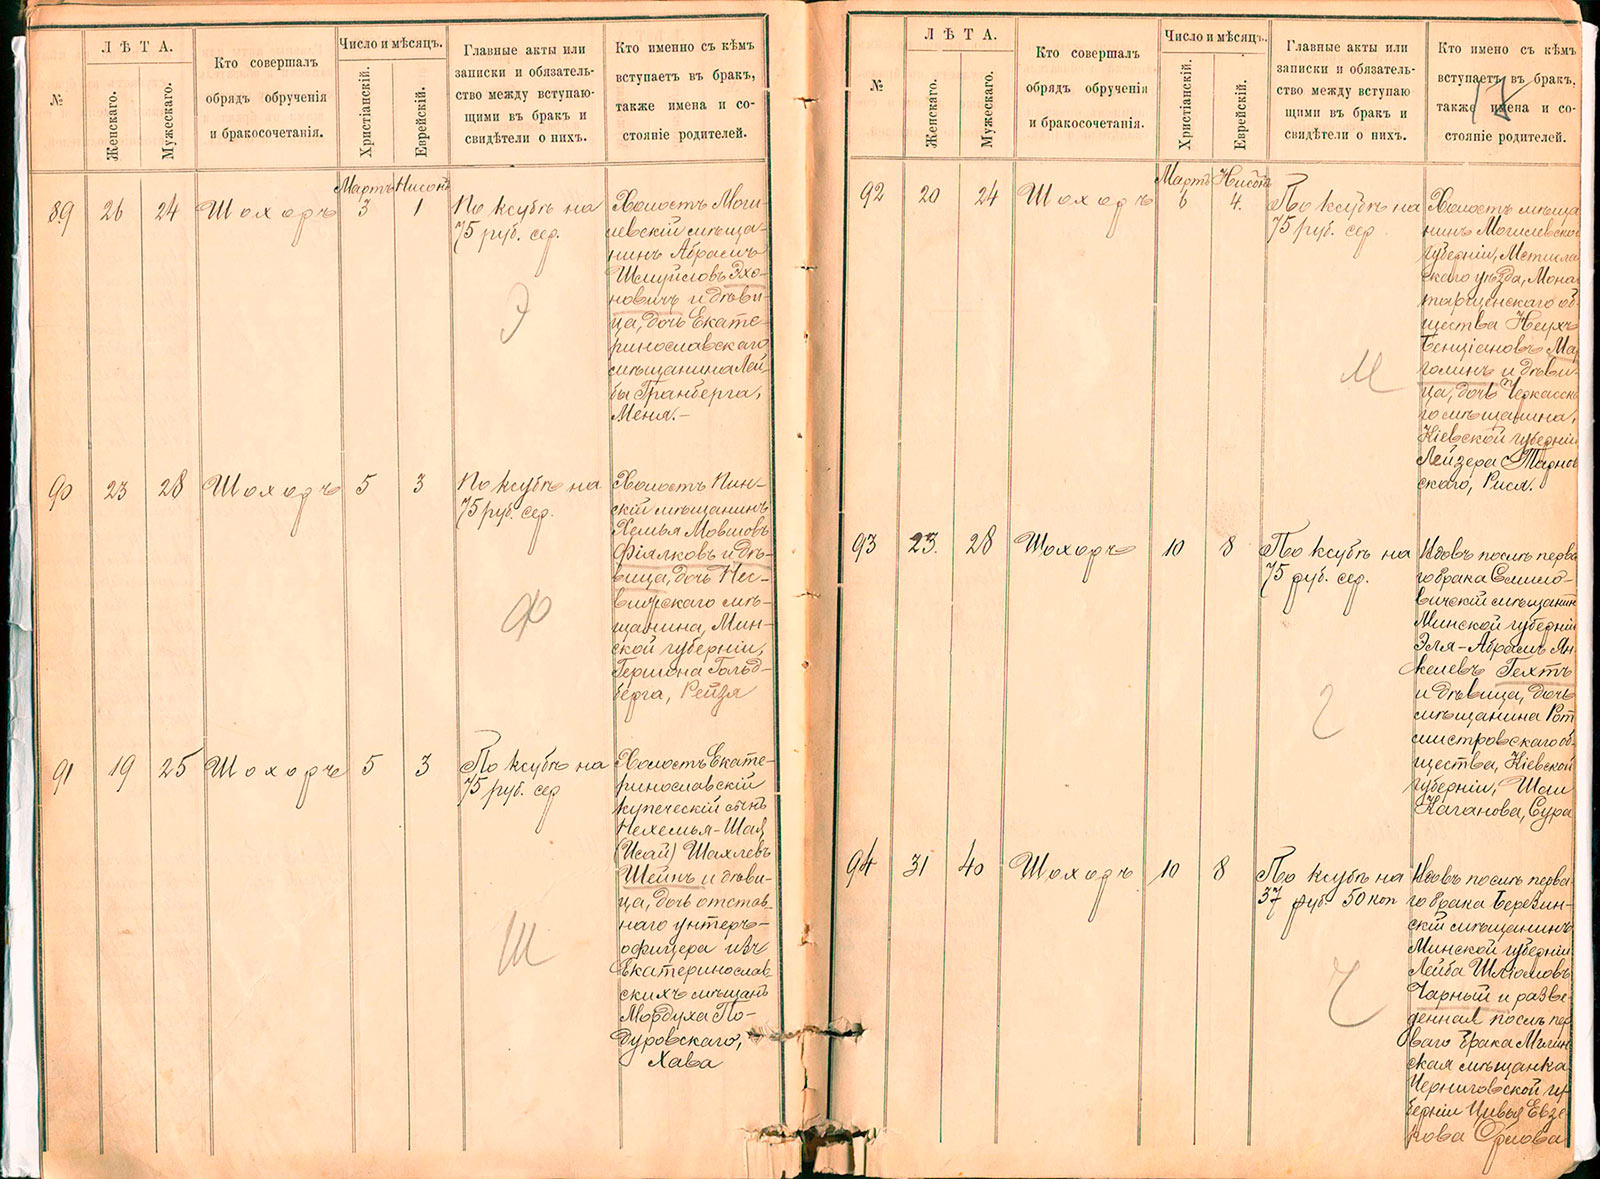 №
ЛѢТА.
Женскаго.
Мужескаго.
Кто совершалъ
обрядъ обрученія
и бракосочетанія.
Число и мѣсяцъ.
Христіанскій.
Еврейскій.
Главные акты или
записки и обязатель-
ство между вступаю-
щими въ бракъ и
свидѣтели о нихъ.
Кто именно съ кѣмъ
вступаетъ въ бракъ,
также имена и со-
стояніе родителей.
Мартъ Нисонъ
89 26 24 Шохоръ 3 1
По ксубѣ на
75 руб. сер.
Э
Холостъ Моги
левскій мѣща-
нинъ Абрамъ
Шмуйловъ Эхо-
новичъ и дѣви-
ца, дочь Екате-
ринославскаго
мѣщанина Лей
бы Гранберга,
Меня.-
90 23 28 Шохоръ 5 3
По ксубѣ на
75 руб. сер.
Ф
Холостъ Пин-
скій мѣщанинъ
Хемья Мовшовъ
Фіалковъ и дѣ-
вица, дочь Нес-
вижскаго мѣ-
щанина, Мин-
ской губерніи,
Гершона Гольд-
берга, Рейзя
91 19 25 Шохоръ 5 3
По ксубѣ на
75 руб. сер
Ш
Холостъ Екате-
ринославскій
купеческій сынъ
Нехемья-Шая,
(Исай) Шахлевъ
Шейнъ и дѣви-
ца, дочь отстав-
наго унтеръ-
офицера изъ
Екатеринослав
скихъ мѣщанъ
Мордуха По-
дуровскаго,
Хава
№
ЛѢТА.
Женскаго.
Мужескаго.
Кто совершалъ
обрядъ обрученія
и бракосочетанія.
Число и мѣсяцъ.
Христіанскій.
Еврейскій.
Главные акты или
записки и обязатель-
ство между вступаю
щими въ бракъ и
свидѣтели о нихъ.
Кто имено съ кѣмъ
вступаетъ въ бракъ,
также имена и со-
стояніе родителей.
Мартъ Нисонъ
92 20 24 Шохоръ 6 4.
По ксубѣ на
75 руб. сер
М
Холостъ мѣща
нинъ Могилевской
губерніи, Мстисла
скаго уѣзда, Мона
тырщенскаго об
щества Неухъ
Бенціановъ Мар
голинъ и дѣви-
ца, дочь Черкасска
го мѣщанина,
Кіевской губерніи
Лейзера Тарнов
скаго, Рися.
93 23. 28 Шохоръ 10 8
По ксубѣ на
75 руб. сер.
Г
Вдовъ послѣ перва
го брака Сешмо-
вичскій мѣщанин
Минской губерніи
Эля-Абрамъ Ян
келевъ Гехтъ
и дѣвица, дочь
мѣщанина Рот
мистровскаго об-
щества, Кіевской
губерніи, Шаи
Каганова, Сура
94 31 40 Шохоръ 10 8
По ксубѣ на
37 руб 50 коп
Ч
Вдовъ послѣ перва-
го брака Березин-
скій мѣщанинъ
Минской губерніи
Лейба Шліомовъ
Чарный и разве-
денная послѣ пер
ваго брака Мглин
ская мѣщанка
Черниговской гу-
берніи Цивья Евзе
кова Орлова